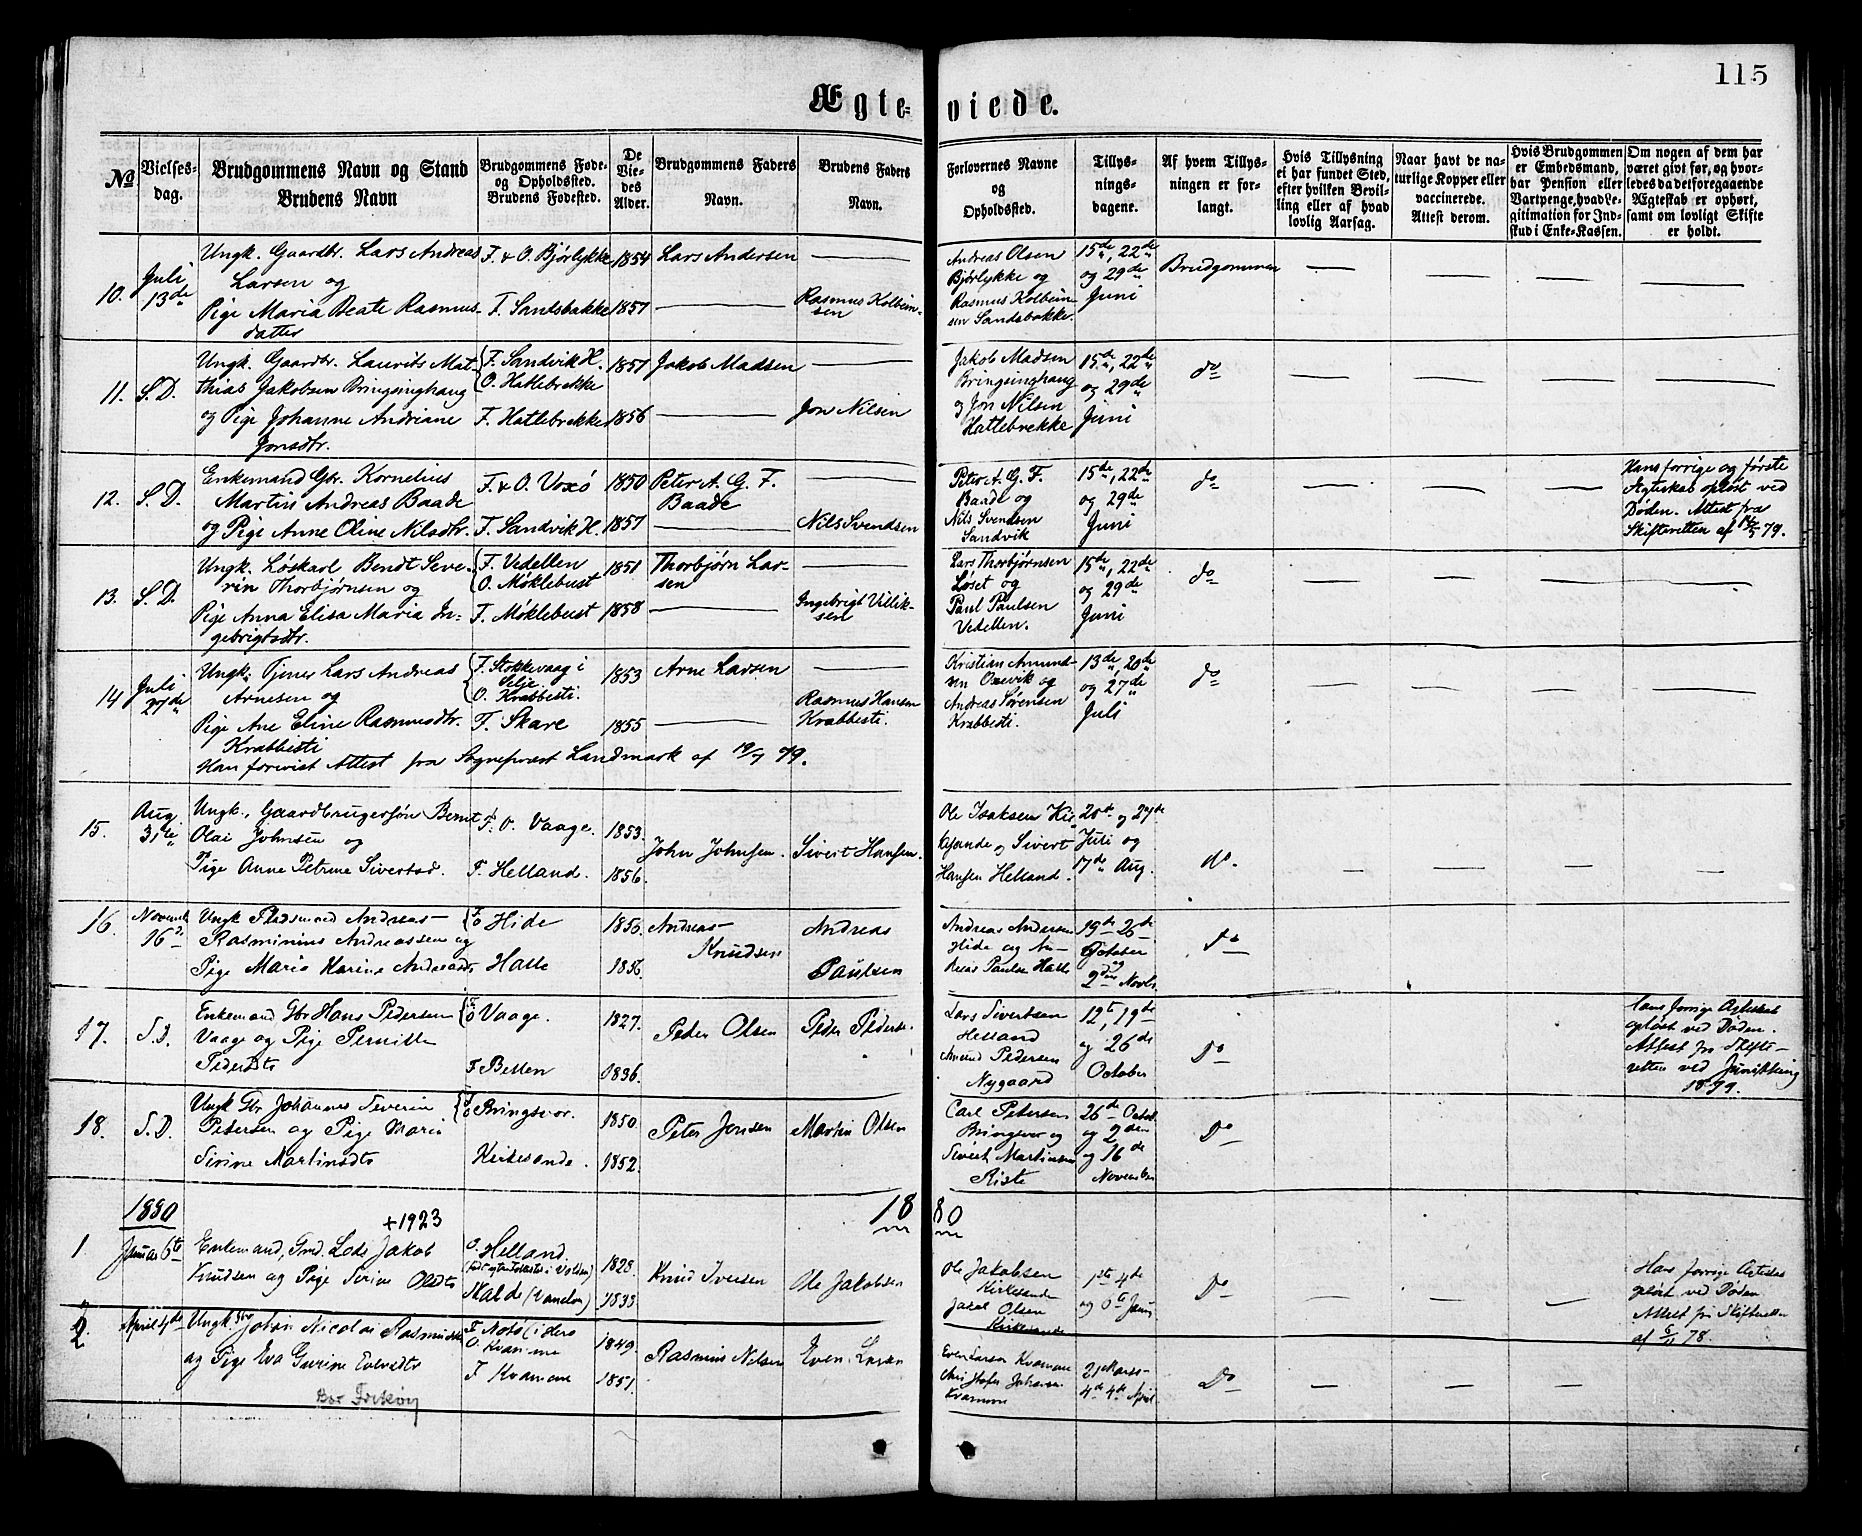 115
Ægte- viede.
No
Vielses-
dag.
Brudgommens Navn og Stand
Brudens Navn
Brudgommens Føde-
og Opholdssted.
Brudens Fødested.
De
Vie-
des
Alder.
Brudgommens Faders
Navn.
Brudens Faders
Navn.
Forlovernes Navne
og
Opholdssted.
Tillys-
nings-
dagene.
Af hvem Tillys-
ningen er for-
langt.
Hvis Tillysning
ei har fundet Sted,
efter hvilken Bevil-
ling eller af hvad
lovlig Aarsag.
Naar havt de na-
turlige Kopper eller
vaccinerede.
Attest derom.
Hvis Brudgommen
er Embedsmand,
har Pension eller
Vartpenge, hvad Le-
gitimation for Ind-
skud i Enke-Kassen.
Om nogen af dem har
været givt før, og hvor-
ledes da det foregaaende
Ægteskab er ophørt,
samt om lovligt Skifte
er holdt.
10.
Juli
13de
Ungk. Gaardbr. Lars Andreas
Larsen og
Pige Maria Beate Rasmus-
datter
F. & O. Bjørlykke
F. Sandsbakke
1854
1857
Lars Andersen
Rasmus Kolbein-
sen
Andreas Olsen
Bjørlykke og
Rasmus Kolbein-
sen Sandsbakke.
15de, 22de
og 29de
Juni
Brudgommen
11.
S. D.
Ungk. Gaardbr. Laurits Mat-
thias Jakobsen Bringsinghaug
og Pige Johanne Andriane
Jonsdtr.
F. Sandvik H.
O. Hatlebrekke
F. Hatlebrekke
1857
1856
Jakob Madsen
Jon Nilsen
Jakob Madsen
Bringsinghaug
og Jon Nilsen
Hatlebrekke
15de, 22de
og 29de
Juni
do
12.
S. D.
Enkemand Gbr. Kornelius
Martin Andreas Baade
og Pige Anne Oline Nilsdtr.
F. & O. Voxö
F. Sandvik H.
1850
1857
Peter A. G. F.
Baade
Nils Svendsen
Peter A. G. F.
Baade og
Nils Svendsen
Sandvik
15de, 22de
og 29de
Juni
do
Hans forrige og første
Ægteskab opløst ved
Døden. Attest fra
Skifteretten af 79.
13.
S. D.
Ungk. Løskarl Bendt Seve-
rin Thorbjørnsen og
Pige Anna Elisa Maria In-
gebrigtsdtr.
F. Vedellen
O. Møklebust
F. Møklebust
1851
1858
Thorbjørn Lar-
sen
Ingebrigt Villik-
sen
Lars Thorbjørnsen
Løset og
Paul Paulsen
Vedellen.
15de, 22de
og 29de
Juni
do
14
Juli
27de
Ungk. Tjener Lars Andreas
Arnesen og
Pige Ane Eline Rasmusdtr.
Krabbesti
F. Stokkevaag i
Selje
O. Krabbesti.
F. Skare
1853
1855
Arne Larsen
Rasmus Hansen
Krabbesti.
Kristian Amund-
sen Oxevik og
Andreas Sørensen
Krabbesti.
13de, 20de
og 27de
Juli
do
Han forevist Attest fra Sogneprest Landmark af 19/7 79.
15.
Aug.
31te
Ungk., Gaardbrugersøn Bernt
Olai Johnsen og
Pige Anne Petrine Sivertsd.
F. O. Vaage.
F. Helland.
1853.
1856.
John Johnsen.
Sivert Hansen.
Ole Isaksen
og Sivert
Hansen Helland.
20de og 27de
Juli og
17de Aug.
do.
16.
Novemb.
16de
Ungk Pladsmand Andreas
Rasminius Andreassen og
Pige Maria Karine Andreasdt
F O Hide
Halle
1856.
1856.
Andreas
Knudsen
Andreas
Paulsen
Andreas Andersen
Hide og An-
dreas Paulsen Halle
19de 26de
October
og
2den Novbr.
Do
17.
S. D.
Enkemand Gbr Hans Pedersen
Vaage og Pige Pernille
Pedersdt
F O Vaage.
F Betten
1827.
1836.
Peder Olsen
Peder Pederse.
Lars Sivertsen
Helland
Amund Pedersen
Nygaard
12te, 19de
og 26de
October
Do
Hans forrige Ægteskab
opløst ved Døden.
Attest fra Skifte-
retten ved
1879.
18.
S. D.
Ungk Gbr Johannes Severin
Petersen og Pige Maria
Sirine Martinsdt
F O Bringsvor.
Kirkesande.
1850.
1852.
Peter Jensen
Martin Olsen
Carl Petersen
Bringsvor og
Sivert Martinsen
Riste
26de Octob.
og 2den
og 16de
November
Do
1880
18 80
+1923
1.
Januar 6te
Enkemand, Gmd. Lods Jakob
Knudsen og Pige Sirine Olsdt
O. Helland.
Halde (Vanelven)
1828.
1833
Knud Iversen
Ole Jakobsen
Ole Jakobsen
Kirkesande
Jakob Olsen
Kirkesande
1ste 4de
og 6te Janu
Do
Hans forrige Ægteskab
opløst ved Døden
Attest fra Skifteretten
af 78.
2
April 4de
Ungk. Gbr Johan Nicolai Rasmussen
og Pige Eva Gurine Evensdt
F Notö
O. Kvamme
F Kvamme
1849.
1851.
Rasmus Nilsen
Even Larsen
Even Larsen Kvamme
Christofer Johansen
Kvamme
21 Marts
4de April
Do
Bor